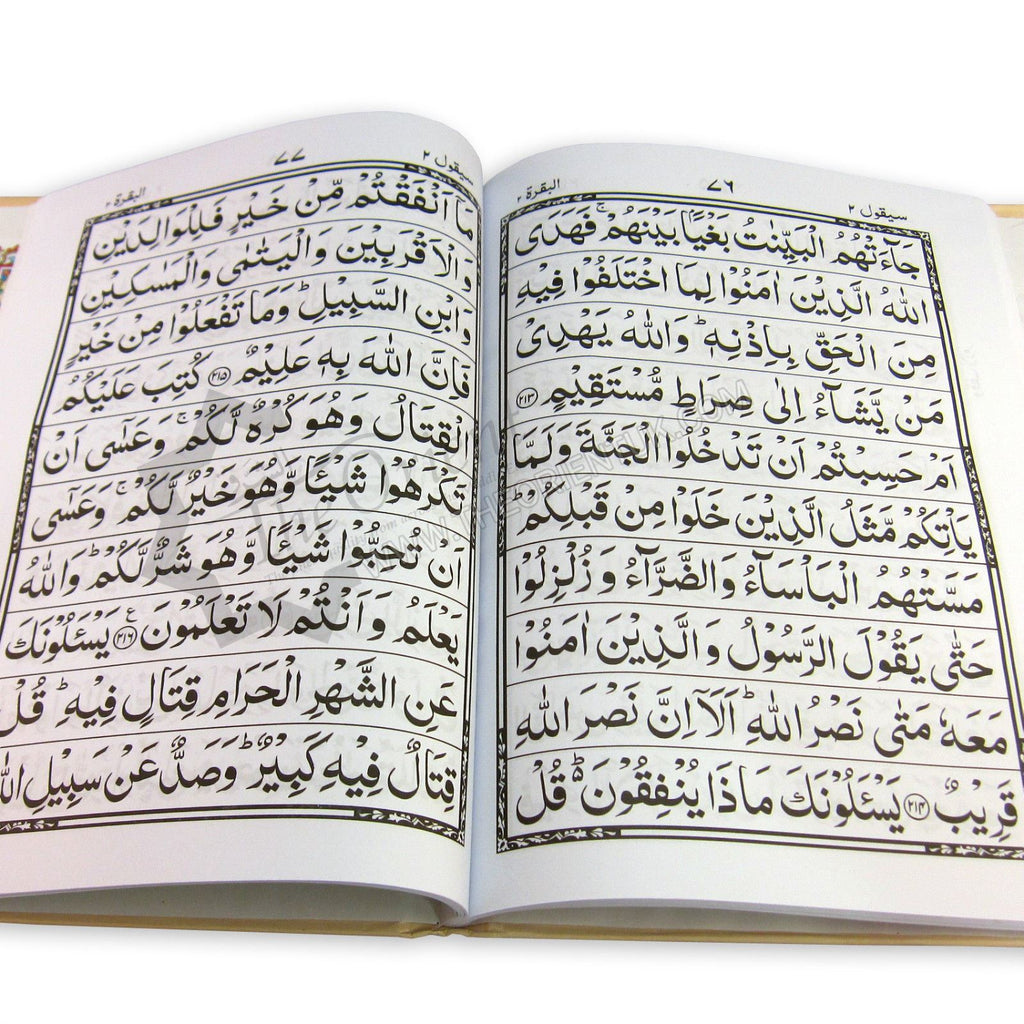 سيقول ٢
٧٦
البقرة ٢
جَآءَتْهُمُ الْبَيِّنٰتُ بَغْيًۢا بَيْنَهُمْ ۚ فَهَدَى
اللّٰهُ الَّذِيْنَ اٰمَنُوْا لِمَا اخْتَلَفُوْا فِيْهِ
مِنَ الْحَقِّ بِاِذْنِهٖ ؕ وَاللّٰهُ يَهْدِىْ
مَنْ يَّشَآءُ اِلٰى صِرَاطٍ مُّسْتَقِيْمٍ ﴿٢١٣﴾
اَمْ حَسِبْتُمْ اَنْ تَدْخُلُوا الْجَنَّةَ وَلَمَّا
يَاْتِكُمْ مَّثَلُ الَّذِيْنَ خَلَوْا مِنْ قَبْلِكُمْ ؕ
مَسَّتْهُمُ الْبَاْسَآءُ وَالضَّرَّآءُ وَزُلْزِلُوْا
حَتّٰى يَقُوْلَ الرَّسُوْلُ وَالَّذِيْنَ اٰمَنُوْا
مَعَهٗ مَتٰى نَصْرُ اللّٰهِ ؕ اَلَآ اِنَّ نَصْرَ اللّٰهِ
قَرِيْبٌ ﴿٢١٤﴾ يَسْـَٔلُوْنَكَ مَاذَا يُنْفِقُوْنَ ؕ قُلْ
سيقول ٢
٧٧
البقرة ٢
مَآ اَنْفَقْتُمْ مِّنْ خَيْرٍ فَلِلْوَالِدَيْنِ
وَالْاَقْرَبِيْنَ وَالْيَتٰمٰى وَالْمَسٰكِيْنِ
وَابْنِ السَّبِيْلِ ؕ وَمَا تَفْعَلُوْا مِنْ خَيْرٍ
فَاِنَّ اللّٰهَ بِهٖ عَلِيْمٌ ﴿٢١٥﴾ كُتِبَ عَلَيْكُمُ
الْقِتَالُ وَهُوَ كُرْهٌ لَّكُمْ ۚ وَعَسٰٓى اَنْ
تَكْرَهُوْا شَيْـًٔا وَّهُوَ خَيْرٌ لَّكُمْ ۚ وَعَسٰٓى
اَنْ تُحِبُّوْا شَيْـًٔا وَّهُوَ شَرٌّ لَّكُمْ ؕ وَاللّٰهُ
يَعْلَمُ وَاَنْتُمْ لَا تَعْلَمُوْنَ ﴿٢١٦﴾ ع يَسْـَٔلُوْنَكَ
عَنِ الشَّهْرِ الْحَرَامِ قِتَالٍ فِيْهِ ؕ قُلْ
قِتَالٌ فِيْهِ كَبِيْرٌ ؕ وَصَدٌّ عَنْ سَبِيْلِ اللّٰهِ